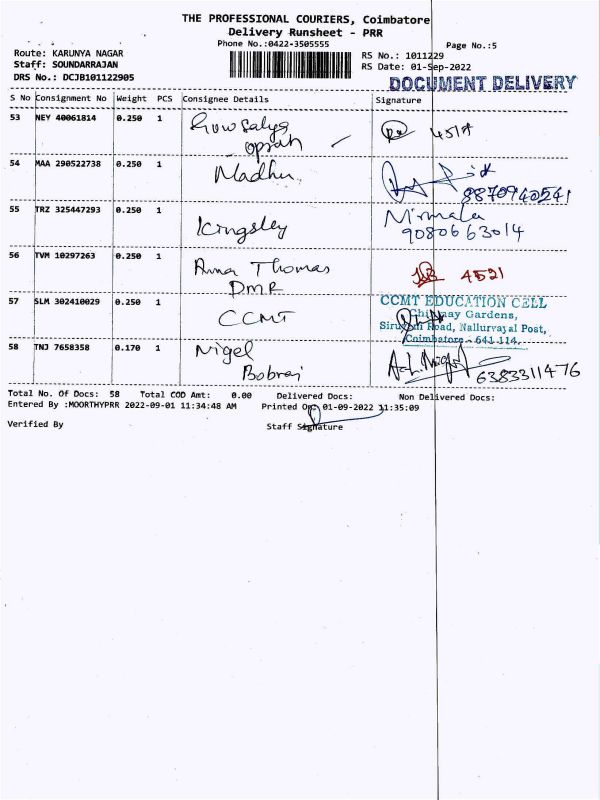 THE PROFESSIONAL COURIERS, Coimbatore
Delivery Runsheet - PRR
Phone No.:0422-3505555
Page No.:5
Route: KARUNYA NAGAR
Staff: SOUNDARRAJAN
DRS No.: DCJB101122905
RS No.: 1011229
RS Date: 01-Sep-2022
DOCUMENT DELIVERY
S No Consignment No Weight PCS Consignee Details Signature
53 NEY 40061814 0.250 1
54 MAA 290522738 0.250 1 Madhu 8870940541
55 TRZ 325447293 0.250 1 Kingsley Nirmala
9080663014
56 TVM 10297263 0.250 1 Anna Thomas 4521
DMR
57 SLM 302410029 0.250 1 CCMT CCMT EDUCATION CELL
Chinmay Gardens,
Siruvani Road, Nallurvayal Post,
Coimbatore - 641 114.
58 TNJ 7658358 0.170 1 Nigel
Bobraj 6383311476
Total No. Of Docs: 58 Total COD Amt: 0.00 Delivered Docs: Non Delivered Docs:
Entered By :MOORTHYPRR 2022-09-01 11:34:48 AM Printed On: 01-09-2022 11:35:09
Verified By Staff Signature